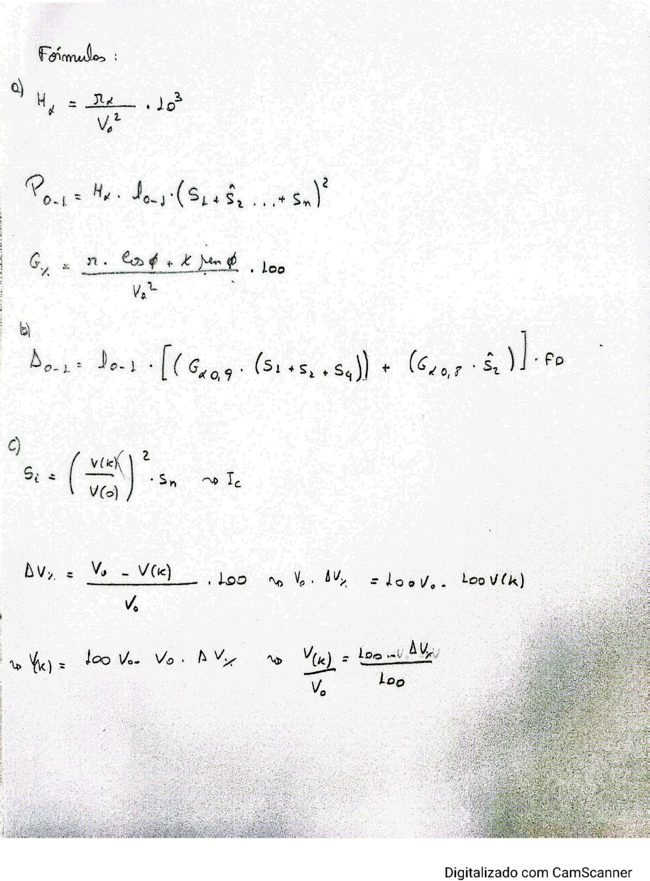 Fórmulas :
a) H_α = r_α / V_0² . 10³
P_0-1 = H_α . l_0-1 . (S_1 + Ŝ_2 ... + S_n)²
G_% = r . cos ϕ + x sen ϕ / V_0² . 100
b)
Δ_0-1 = l_0-1 . [(G_α0,9 . (S_1 + S_2 + S_4)) + (G_α0,8 . Ŝ_2)] . FD
c)
S_i = (V(k) / V(0))² . S_n ~> I_c
ΔV_% = V_0 - V(k) / V_0 . 100 ~> V_0 . ΔV_% = 100V_0 - 100V(k)
~> V(k) = 100 V_0 - V_0 . ΔV_% ~> V(k) / V_0 = 100 - ΔV_% / 100
Digitalizado com CamScanner